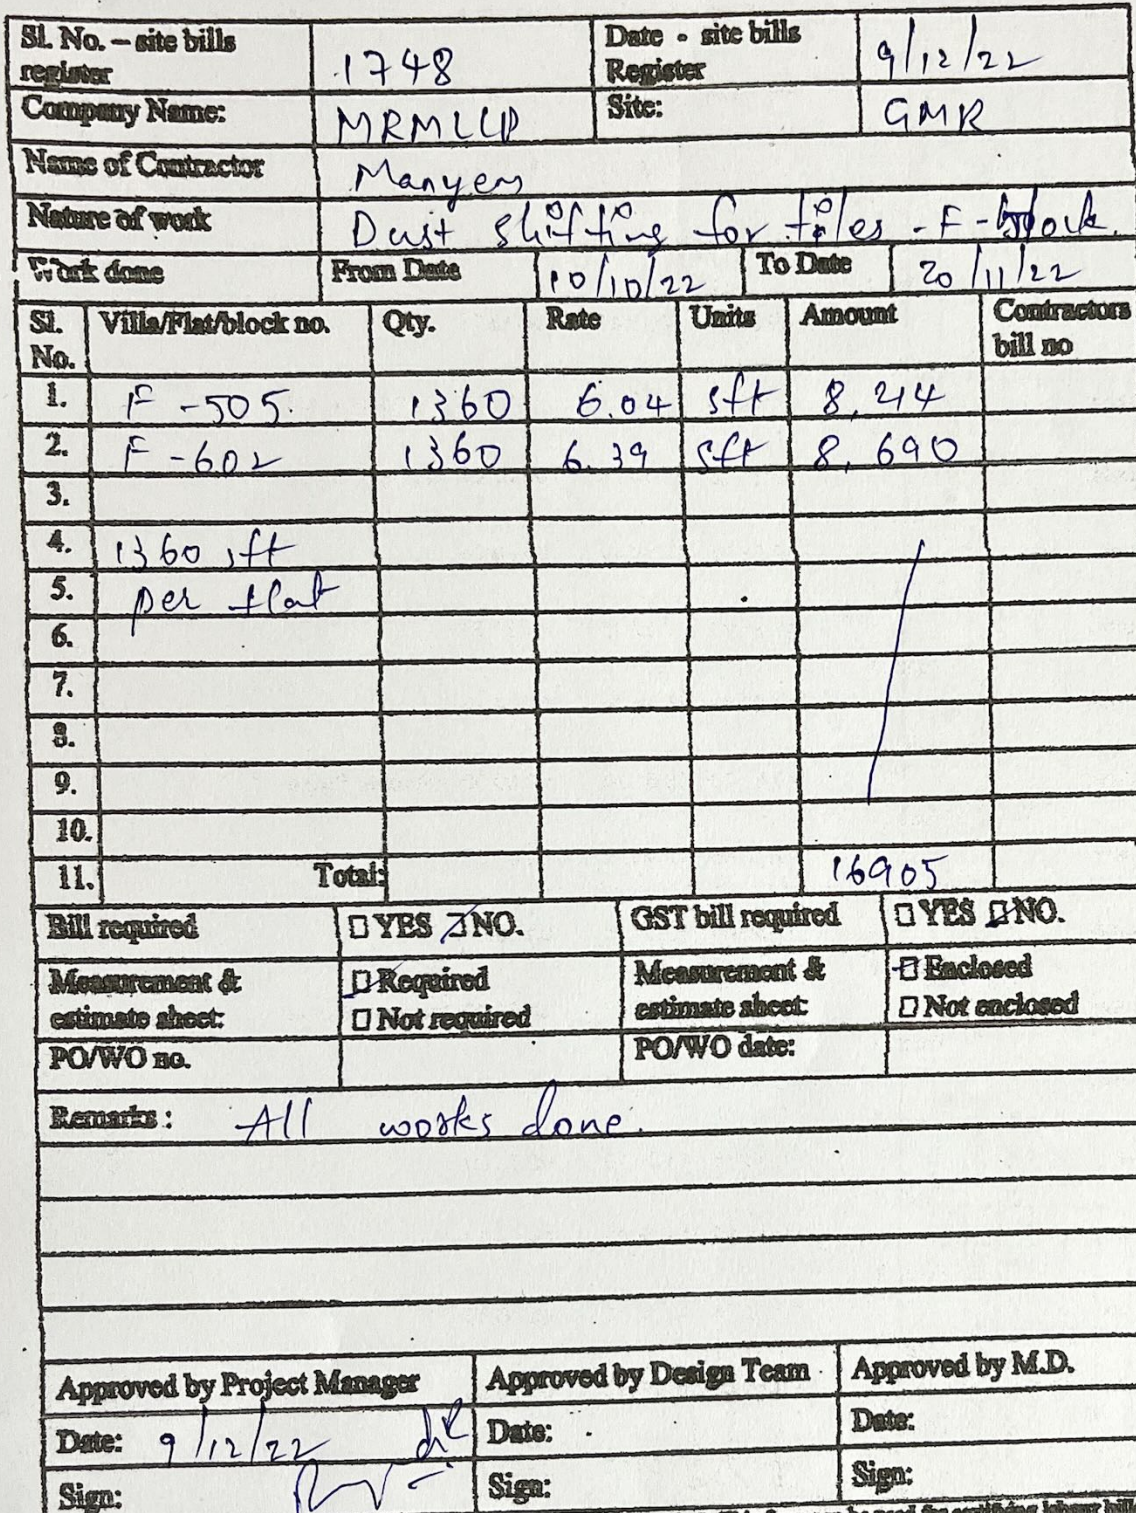 Sl. No. – site bills register 1748 Date - site bills Register 9/12/22
Company Name: MRMLLP Site: GMR
Name of Contractor Manyem
Nature of work Dust shifting for tiles - F - block.
Work done From Date 10/10/22 To Date 20/11/22
Sl. No. Villa/Flat/block no. Qty. Rate Units Amount Contractors bill no
1. F - 505. 1360 6.04 sft 8,214
2. F - 602 1360 6.39 sft 8,690
3.
4. 1360 sft
5. per flat
6.
7.
8.
9.
10.
11. Total: 16905
Bill required YES NO. GST bill required YES NO.
Measurement & estimate sheet: Required Measurement & estimate sheet: Enclosed
Not required Not enclosed
PO/WO no. PO/WO date:
Remarks : All works done.
Approved by Project Manager Approved by Design Team Approved by M.D.
Date: 9/12/22 Date: Date:
Sign: Sign: Sign: